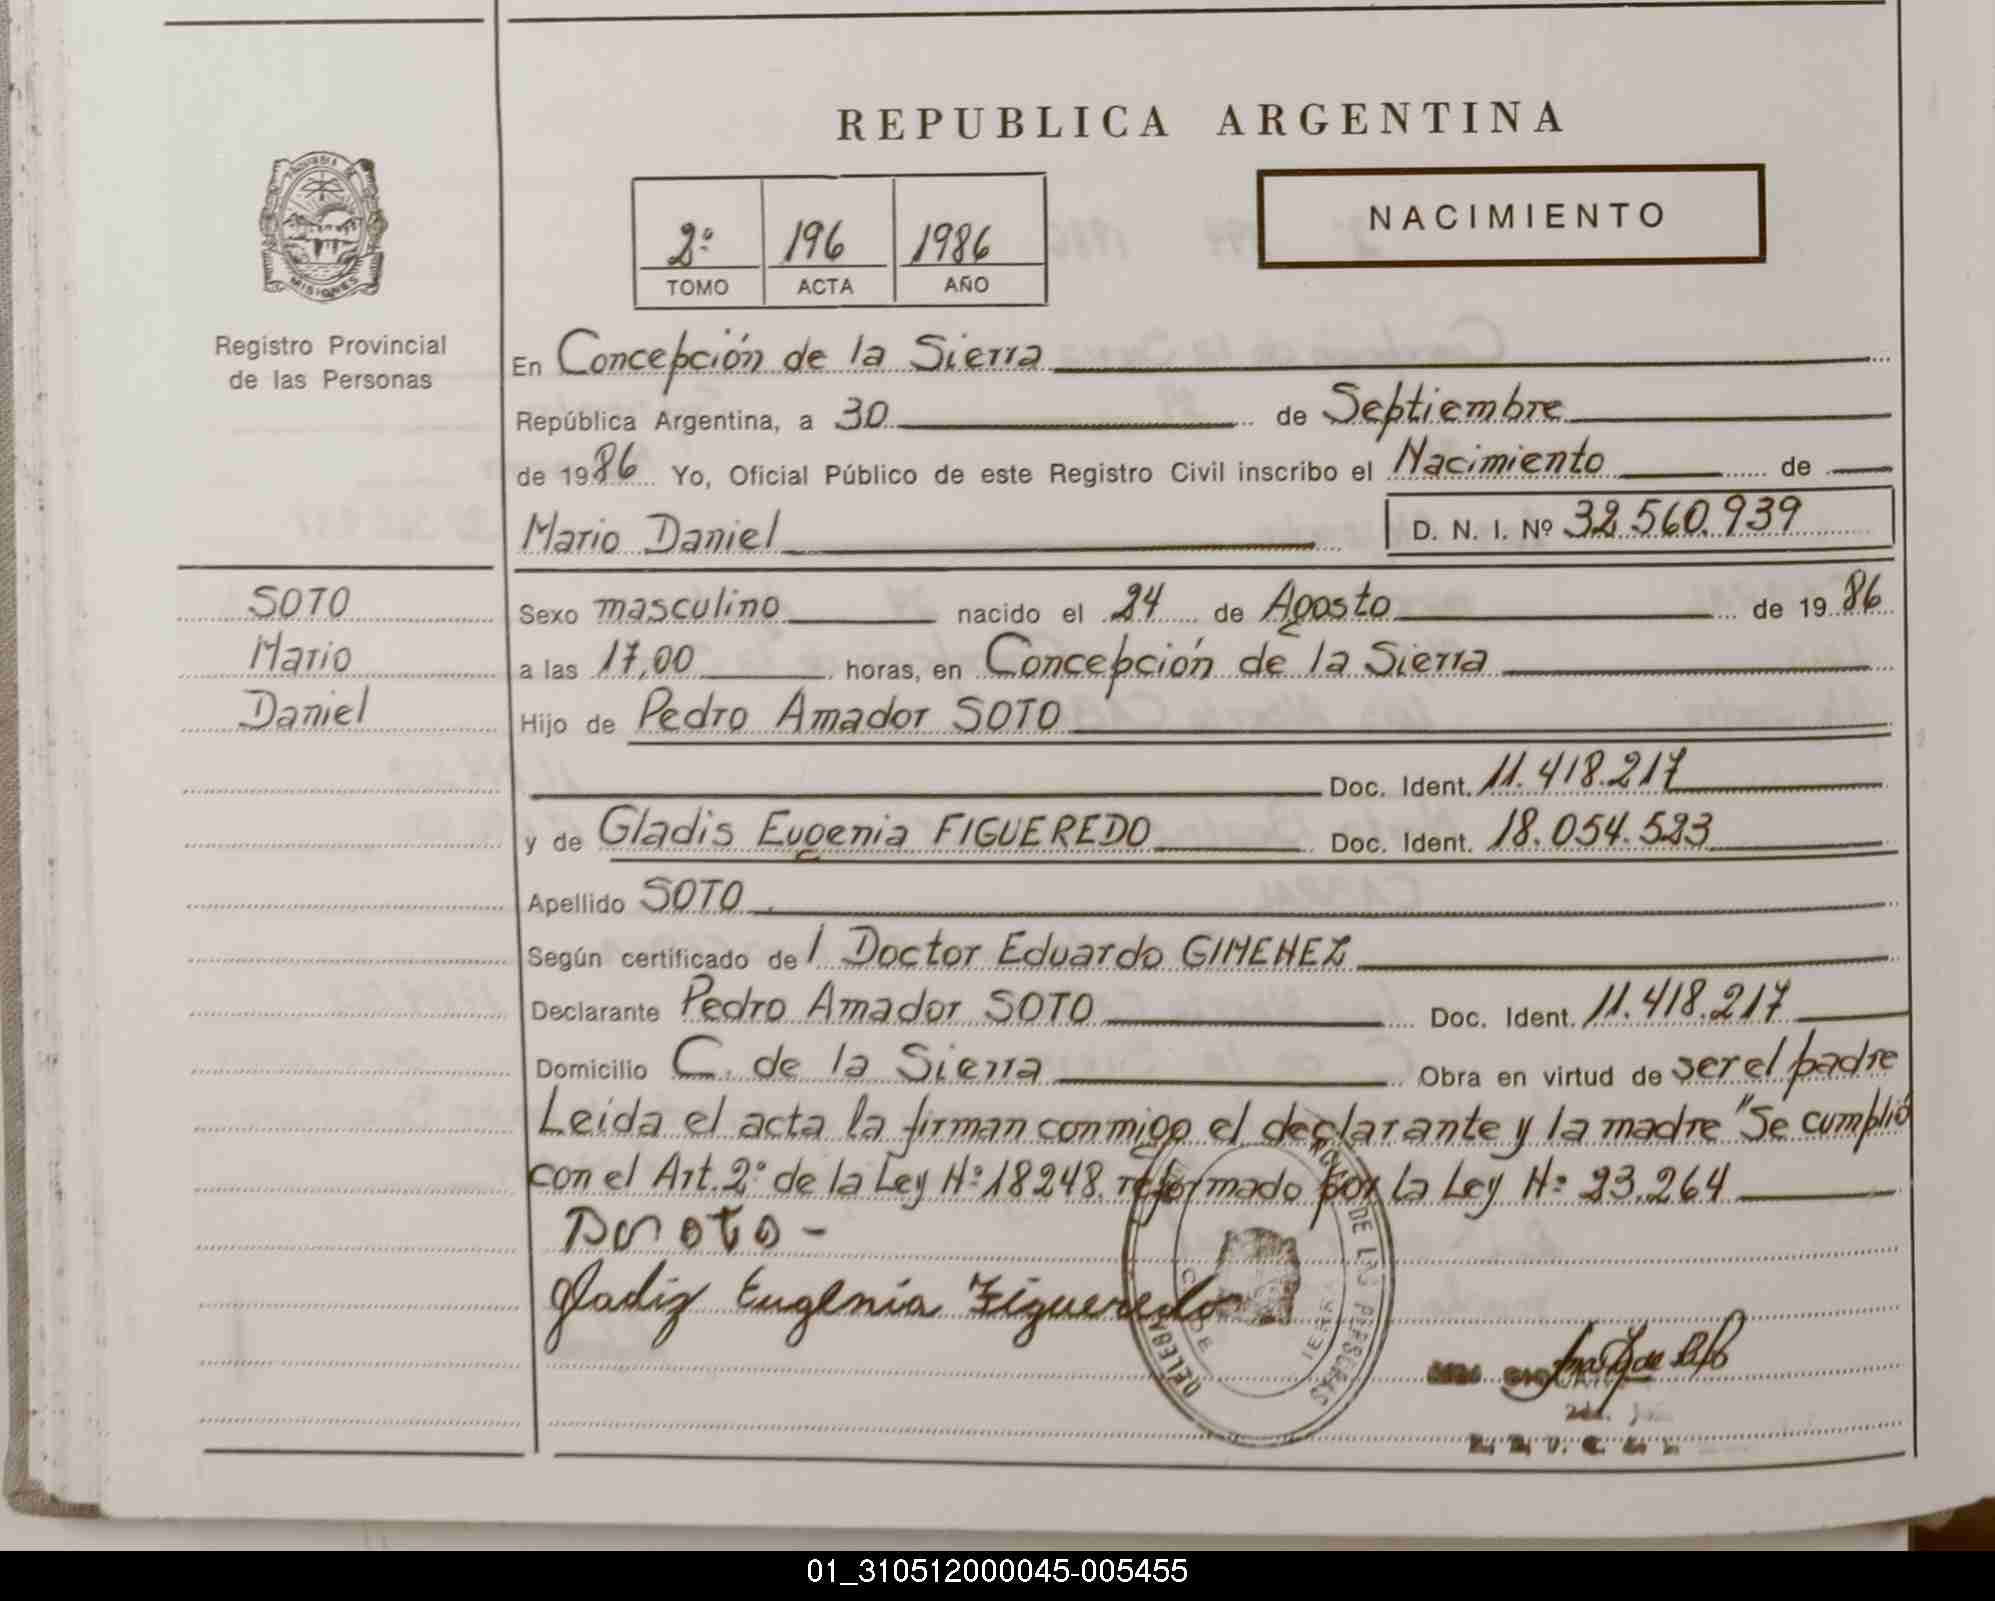 REPUBLICA ARGENTINA
MISIONES
Registro Provincial
de las Personas
2º 196 1986
TOMO ACTA AÑO
NACIMIENTO
En Concepción de la Sierra
República Argentina, a 30 de Septiembre
de 1986 Yo, Oficial Público de este Registro Civil inscribo el Nacimiento de
Mario Daniel D. N. I. Nº 32.560.939
SOTO
Mario
Daniel
Sexo masculino nacido el 24 de Agosto de 1986
a las 17,00 horas, en Concepción de la Sierra
Hijo de Pedro Amador SOTO
Doc. Ident. 11.418.217
y de Gladis Eugenia FIGUEREDO Doc. Ident. 18.054.523
Apellido SOTO
Según certificado de l Doctor Eduardo GIMENEZ
Declarante Pedro Amador SOTO Doc. Ident. 11.418.217
Domicilio C. de la Sierra Obra en virtud de ser el padre
Leida el acta la firman conmigo el declarante y la madre "Se cumplió
con el Art. 2º de la Ley Nº 18248. reformado por la Ley Nº 23.264
Gladiz Eugenia Figueredo
DE LAS PERSONAS
01_310512000045-005455